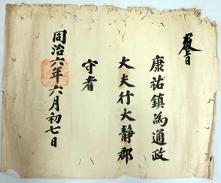 教旨
康祐鎮為通政
大夫行大静郡
守者
同治六年六月初七日